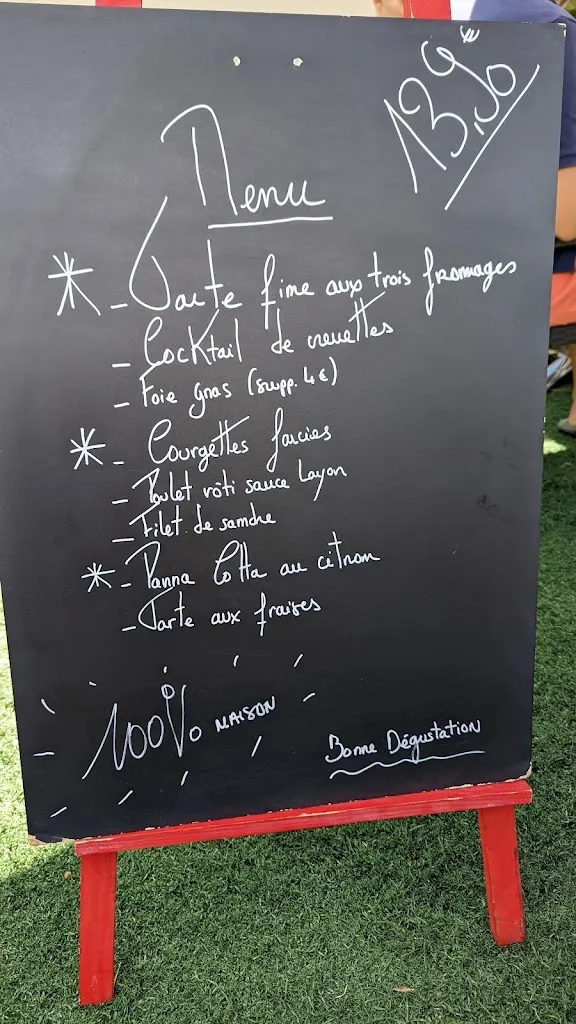 13,90€
Menu
* - Tarte fine aux trois fromages
- Cocktail de crevettes
- Foie gras (supp. 4€)
* - Courgettes farcies
- Poulet rôti sauce Layon
- Filet de sandre
* - Panna Cotta au citron
- Tarte aux fraises
100% MAISON
Bonne Dégustation